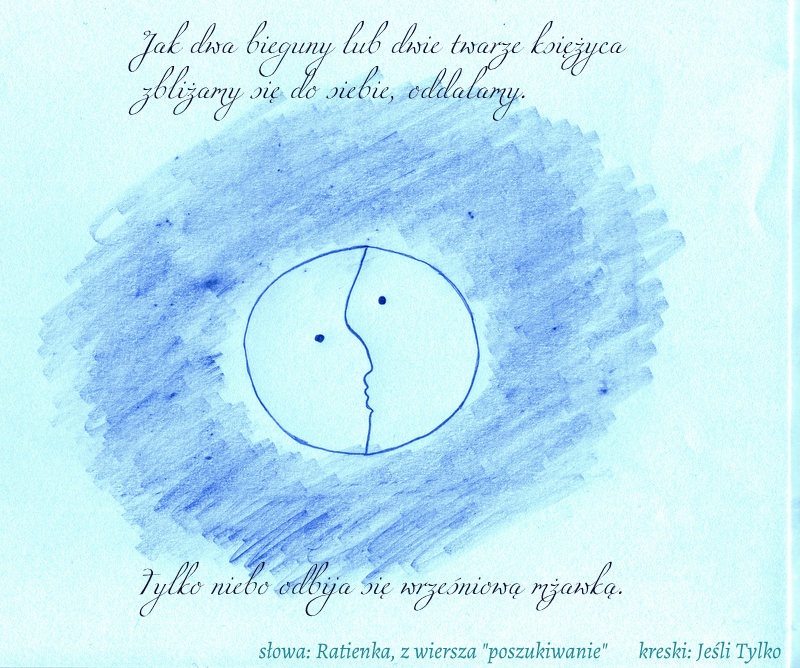 Jak dwa bieguny lub dwie twarze księżyca
zbliżamy się do siebie, oddalamy.
Tylko niebo odbija się wrześniową mżawką.
słowa: Ratienka, z wiersza "poszukiwanie" kreski: Jeśli Tylko